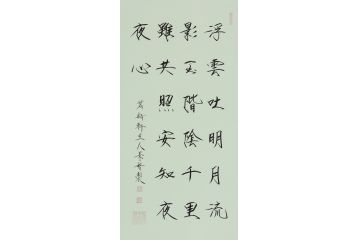 浮雲吐明月流
影玉階陰千里
雖共照安知夜
夜心